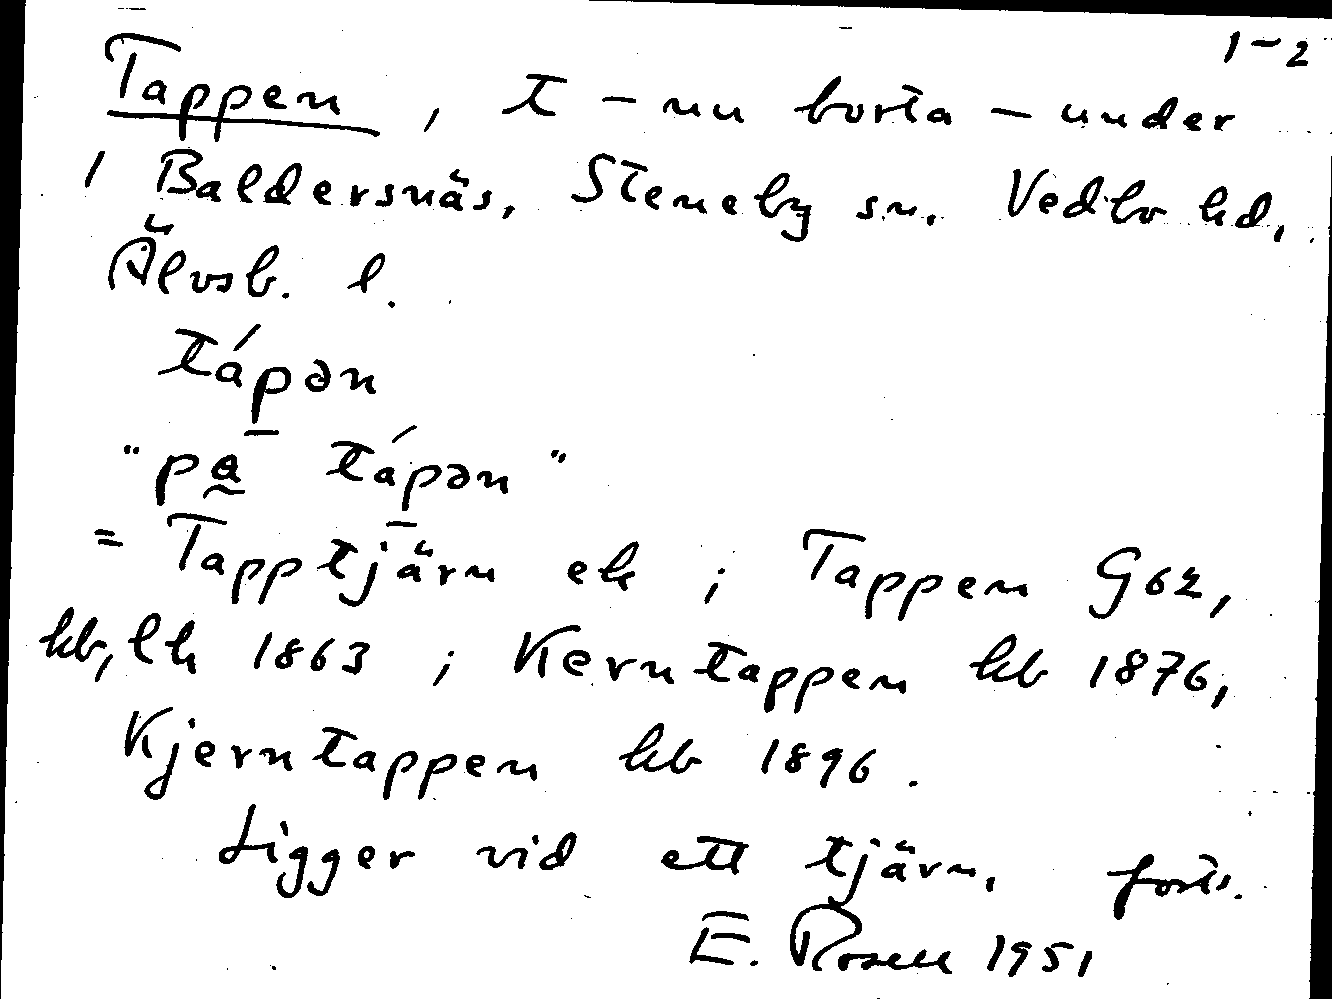 1-2
Tappen, t - nu borta - under
1 Baldersnäs, Steneby sn. Vedbo hd,
Älvsb. l.
tápən
"pa̰ tápən"
= Tapptjärn ek ; Tappen G62,
kb, lh 1863 ; Kerntappen kb 1876,
Kjerntappen kb 1896.
Ligger vid ett tjärn, forts.
E. Rosell 1951